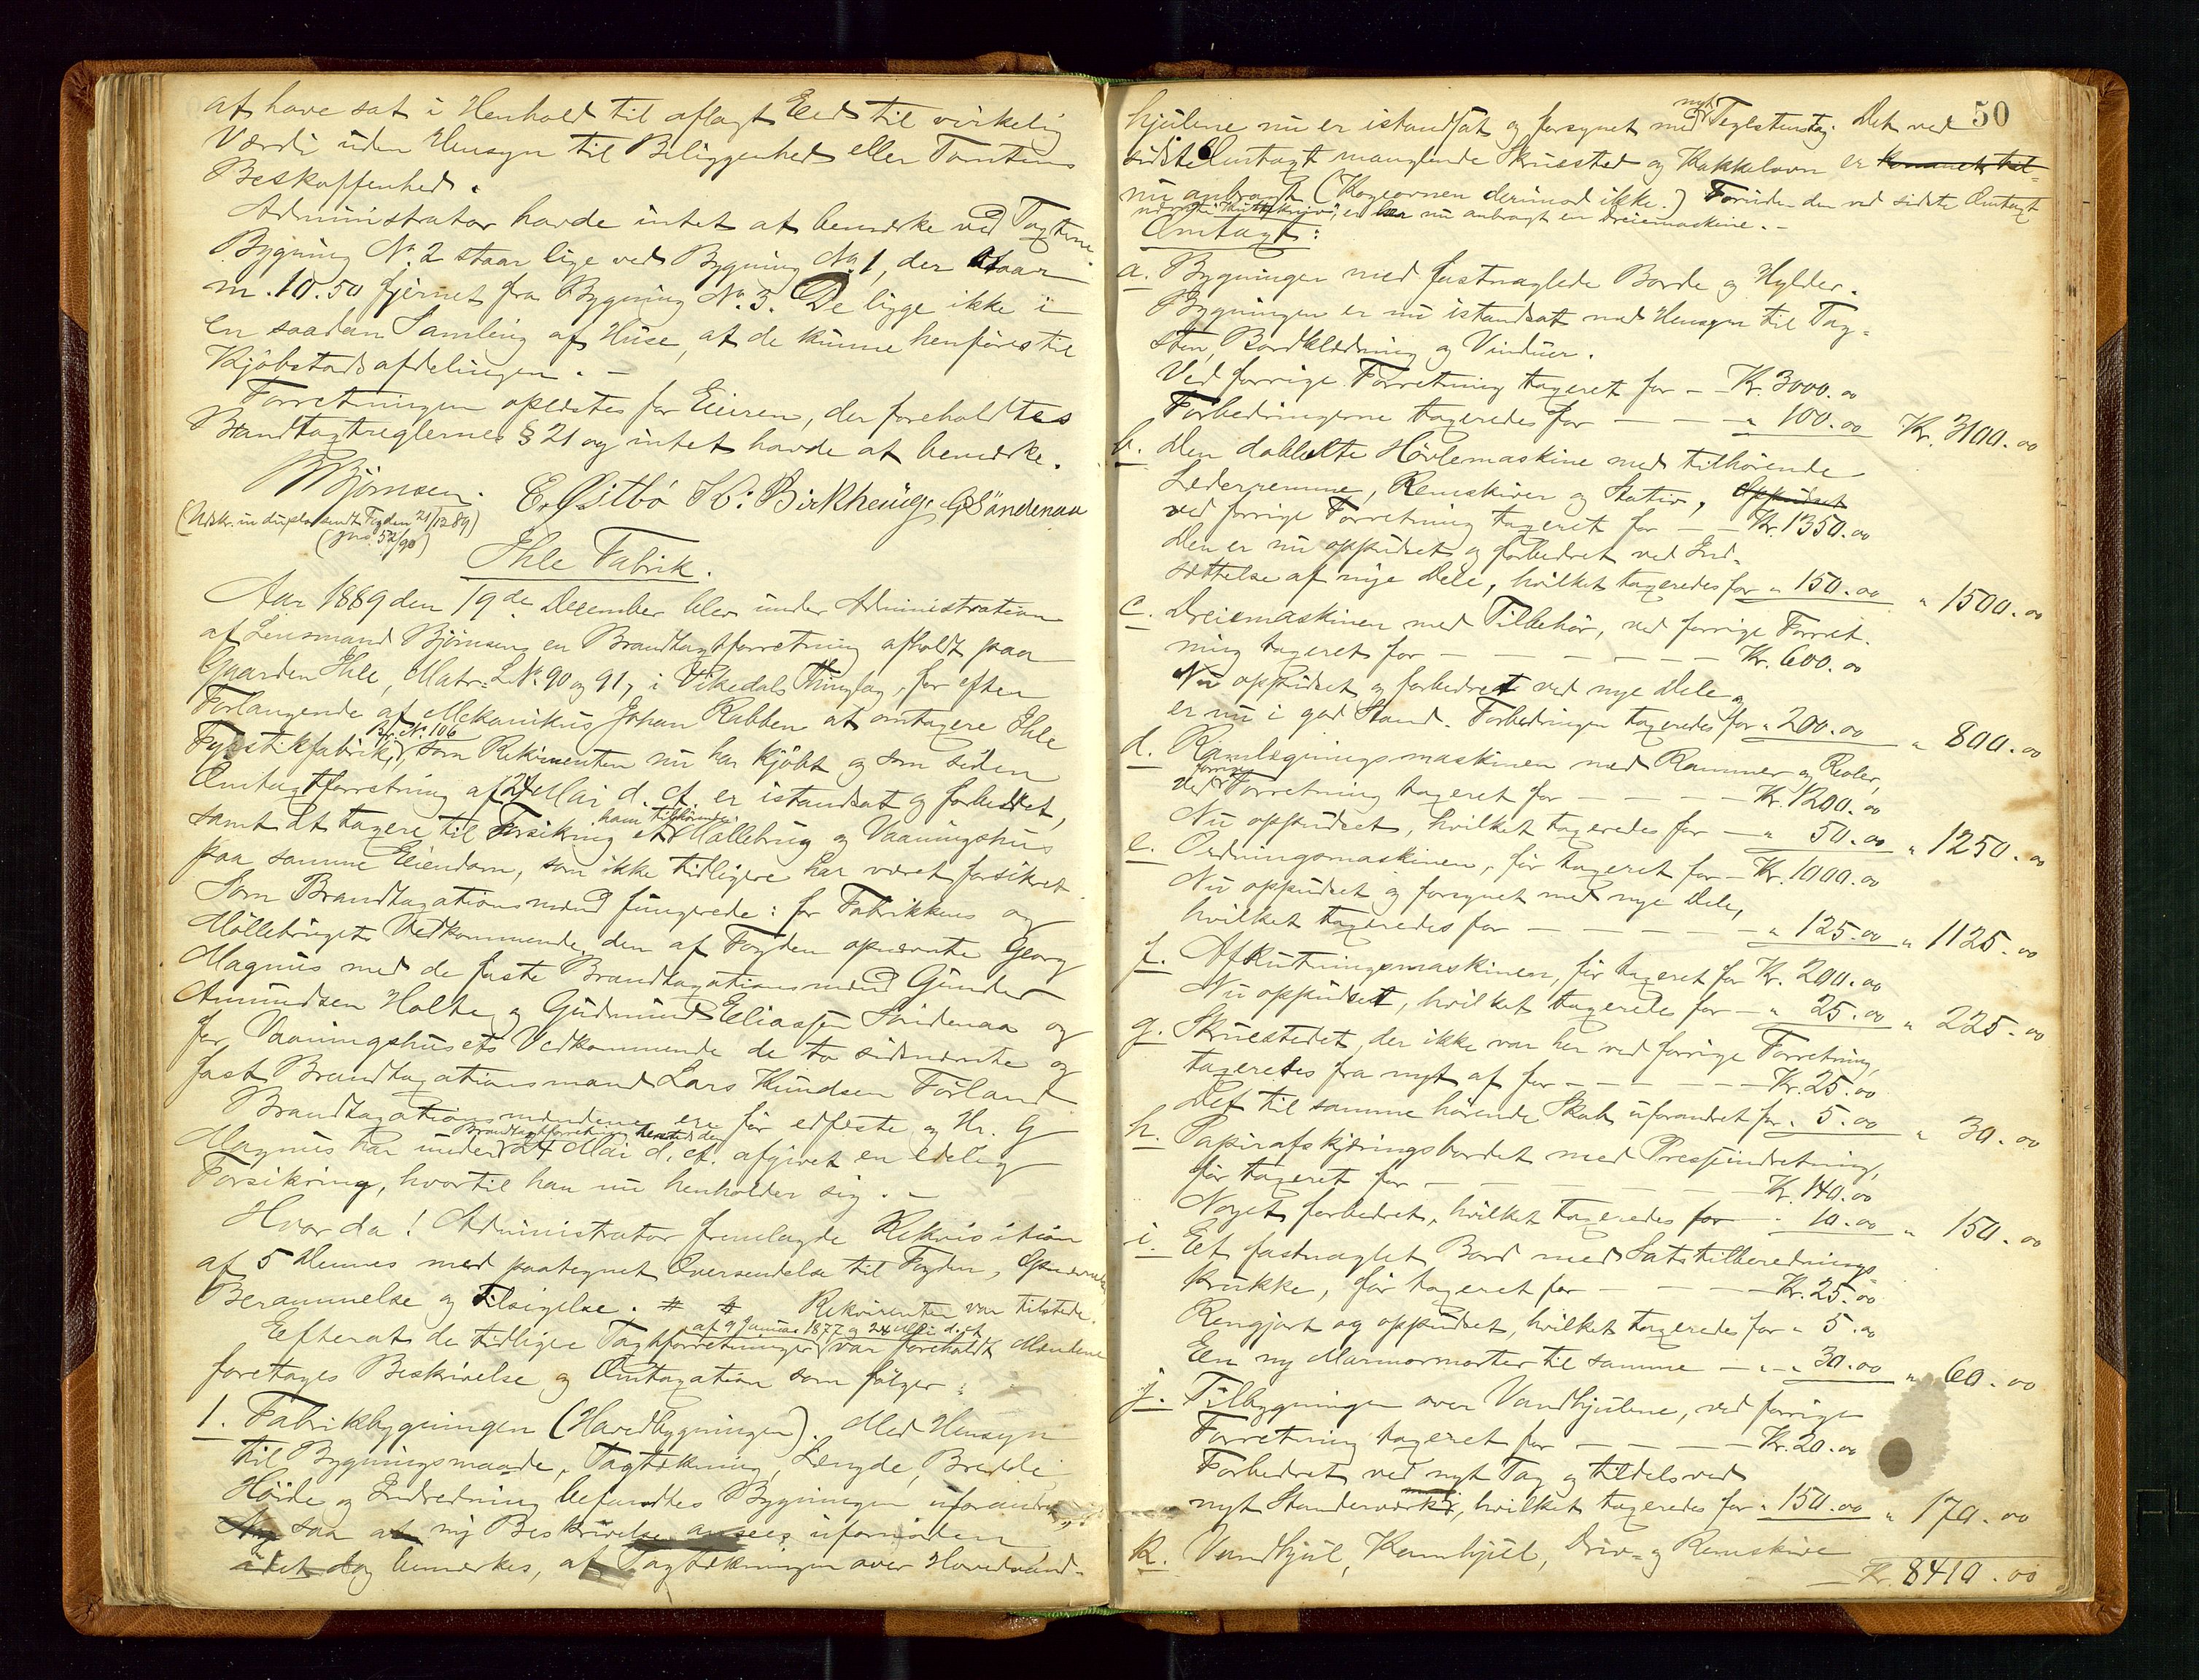 at have sat i Henhold til aflagt Eed til virkelig
Værdi uden Hensyn til Beliggenhed eller Tomtens
Beskaffenhed.
Administrator havde intet at bemærke ved Taxterne.
Bygning No. 2 staar lige ved Bygning No. 1, der staar
m. 10.50 fjernet fra Bygning No. 3. De ligge ikke i
en saadan Samling af Huse, at de kunne henføres til
Kjøbstadsafdelingen. —
Forretningen oplæstes for Eieren, der foreholdtes
Brandtaxtreglernes § 21 og intet havde at bemærke.
Bjørnsen. E. Østbø K: Birkhaug. G Søndenaa
(Udskr. in duplo sendt Fogden 21/12 89)
(Jno. 52/90)
Ihle Fabrik.
Aar 1889 den 19de December blev under Administration
af Lensmand Bjørnsen en Brandtaxtforretning afholdt paa
Gaarden Ihle, Matr. L. No. 90 og 91, i Vikedals Thinglag, for efter
Forlangende af Mekanikus Johan Rabben at omtaxere Ihle
Br. No. 106
Fyrstikfabrik, som Rekvirenten nu har kjøbt og som siden
Omtaxtforretning af 24 Mai d. A. er istandsat og forbedret,
ham tilhørende
samt at taxere til Forsikring et Møllebrug og Vaaningshus
paa samme Eiendom, som ikke tidligere har været forsikret.
Som Brandtaxationsmænd fungerede: for Fabrikkens og
Møllebrugets Vedkommende den af Fogden opnævnte Georg
Magnus med de faste Brandtaxationsmænd Gunder
Amundsen Holte og Gudmund Eliassen Søndenaa og
for Vaaningshusets Vedkommende de to sidenævnte og
fast Brandtaxationsmand Lars Knudsen Førland
Brandtaxationsmændene ere før edfæste og Hr. G
Brandtaxtforretning hersteds
Magnus har under 24 Mai d. A. afgivet en edelig
Forsikring, hvortil han nu henholder sig. —
Hvor da! Administrator fremlagde Rekvisition
af 5 dennes med paategnet Oversendelse til Fogden, Opnævnelse
Berammelse og Tilsigelse. # # Rekvirenten var tilstede.
af 9 Januar 1877 og 24 Mai d. A.
Efterat de tidligere Taxtforretninger var foreholdt Mændene
foretoges Beskrivelse og Omtaxation som følger:
1. Fabrikbygningen (Hovedbygningen). Med Hensyn
til Bygningsmaade, Tagtækning, Længde, Bredde
Høide og Indredning befandtes Bygningen uforandret,
saa at ny Beskrivelse ansees ufornøden
dog bemærkes, at Tagtækningen over Hovedvand-
50
nyt
hjulene nu er istandsat og forsynet med Teglstenstag. Det ved
sidste Omtaxt manglende Skruested og Kakkelovn er
nu anbragt (Kogeovnen derimod ikke.) Foruden den ved sidste Omtaxt
er nu anbragt en Dreiemaskine. —
Omtaxt:
a. Bygningen med fastnaglede Borde og Hylder.
Bygningen er nu istandsat med Hensyn til Tag-
sten, Bordklædning og Vinduer.
Ved forrige Forretning taxeret for — Kr. 3000.00
Forbedringerne taxeredes for — — — " 100.00 Kr. 3100.00
b. Den dobbelte Høvlemaskine med tilhørende
Læderremme, Remskiver og Stativ, Oppudset
ved forrige Forretning taxeret for — — Kr. 1350.00
Den er nu oppudset og forbedret ved Ind-
sættelse af nye Dele, hvilket taxeredes for " 150.00 " 1500.00
c. Dreiemaskinen med Tilbehør, ved forrige Forret-
ning taxeret for — — — — — — Kr. 600.00
Nu oppudset og forbedret ved nye Dele og
er nu i god Stand. Forbedringen taxeredes for " 200.00 " 800.00
d. Ramlægningsmaskinen med Rammer og Reoler,
forrige
ved Forretning taxeret for — — — — Kr. 1200.00
Nu oppudset, hvilket taxeredes for — " 50.00 " 1250.00
e. Ordningsmaskinen, før taxeret for — Kr. 1000.00
Nu oppudset og forsynet med nye Dele,
hvilket taxeredes for — — — — — " 125.00 " 1125.00
f. Afskutningsmaskinen, før taxeret for Kr. 200.00
Nu oppudset, hvilket taxeredes for — " 25.00 " 225.00
g. Skruestedet, der ikke var her ved forrige Forretning,
taxeredes fra nyt af for — — — — — Kr. 25.00
Det til samme hørende Skab uforandret for " 5.00 " 30.00
h. Papirafskjæringsbordet med Presseindretning,
før taxeret for — — — — — — Kr. 140.00
Noget forbedret, hvilket taxeredes for — " 10.00 " 150.00
i. Et fastnaglet Bord med Satstilberednings-
krukke, før taxeret for — — — — Kr. 25.00
Rengjort og oppudset, hvilket taxeredes for " 5.00
En ny Marmormorter til samme — — " 30.00 " 60.00
j. Tilbygningen over Vandhjulene, ved forrige
Forretning taxeret for — — — — Kr. 20.00
Forbedret ved nyt Tag og tildels ved
nyt Standerværk, hvilket taxeredes for " 150.00 " 170.00
k. Vandhjul, Kamhjul, Driv- og Remskive
Kr. 8410.00